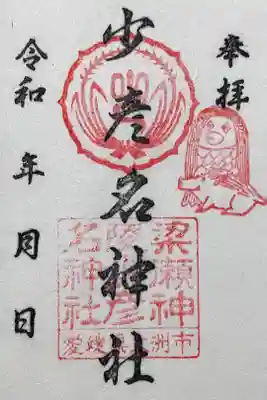 奉拝
少彦名神社
令和 年 月 日
梁瀬神
陵 彦
名神社
愛媛 洲市